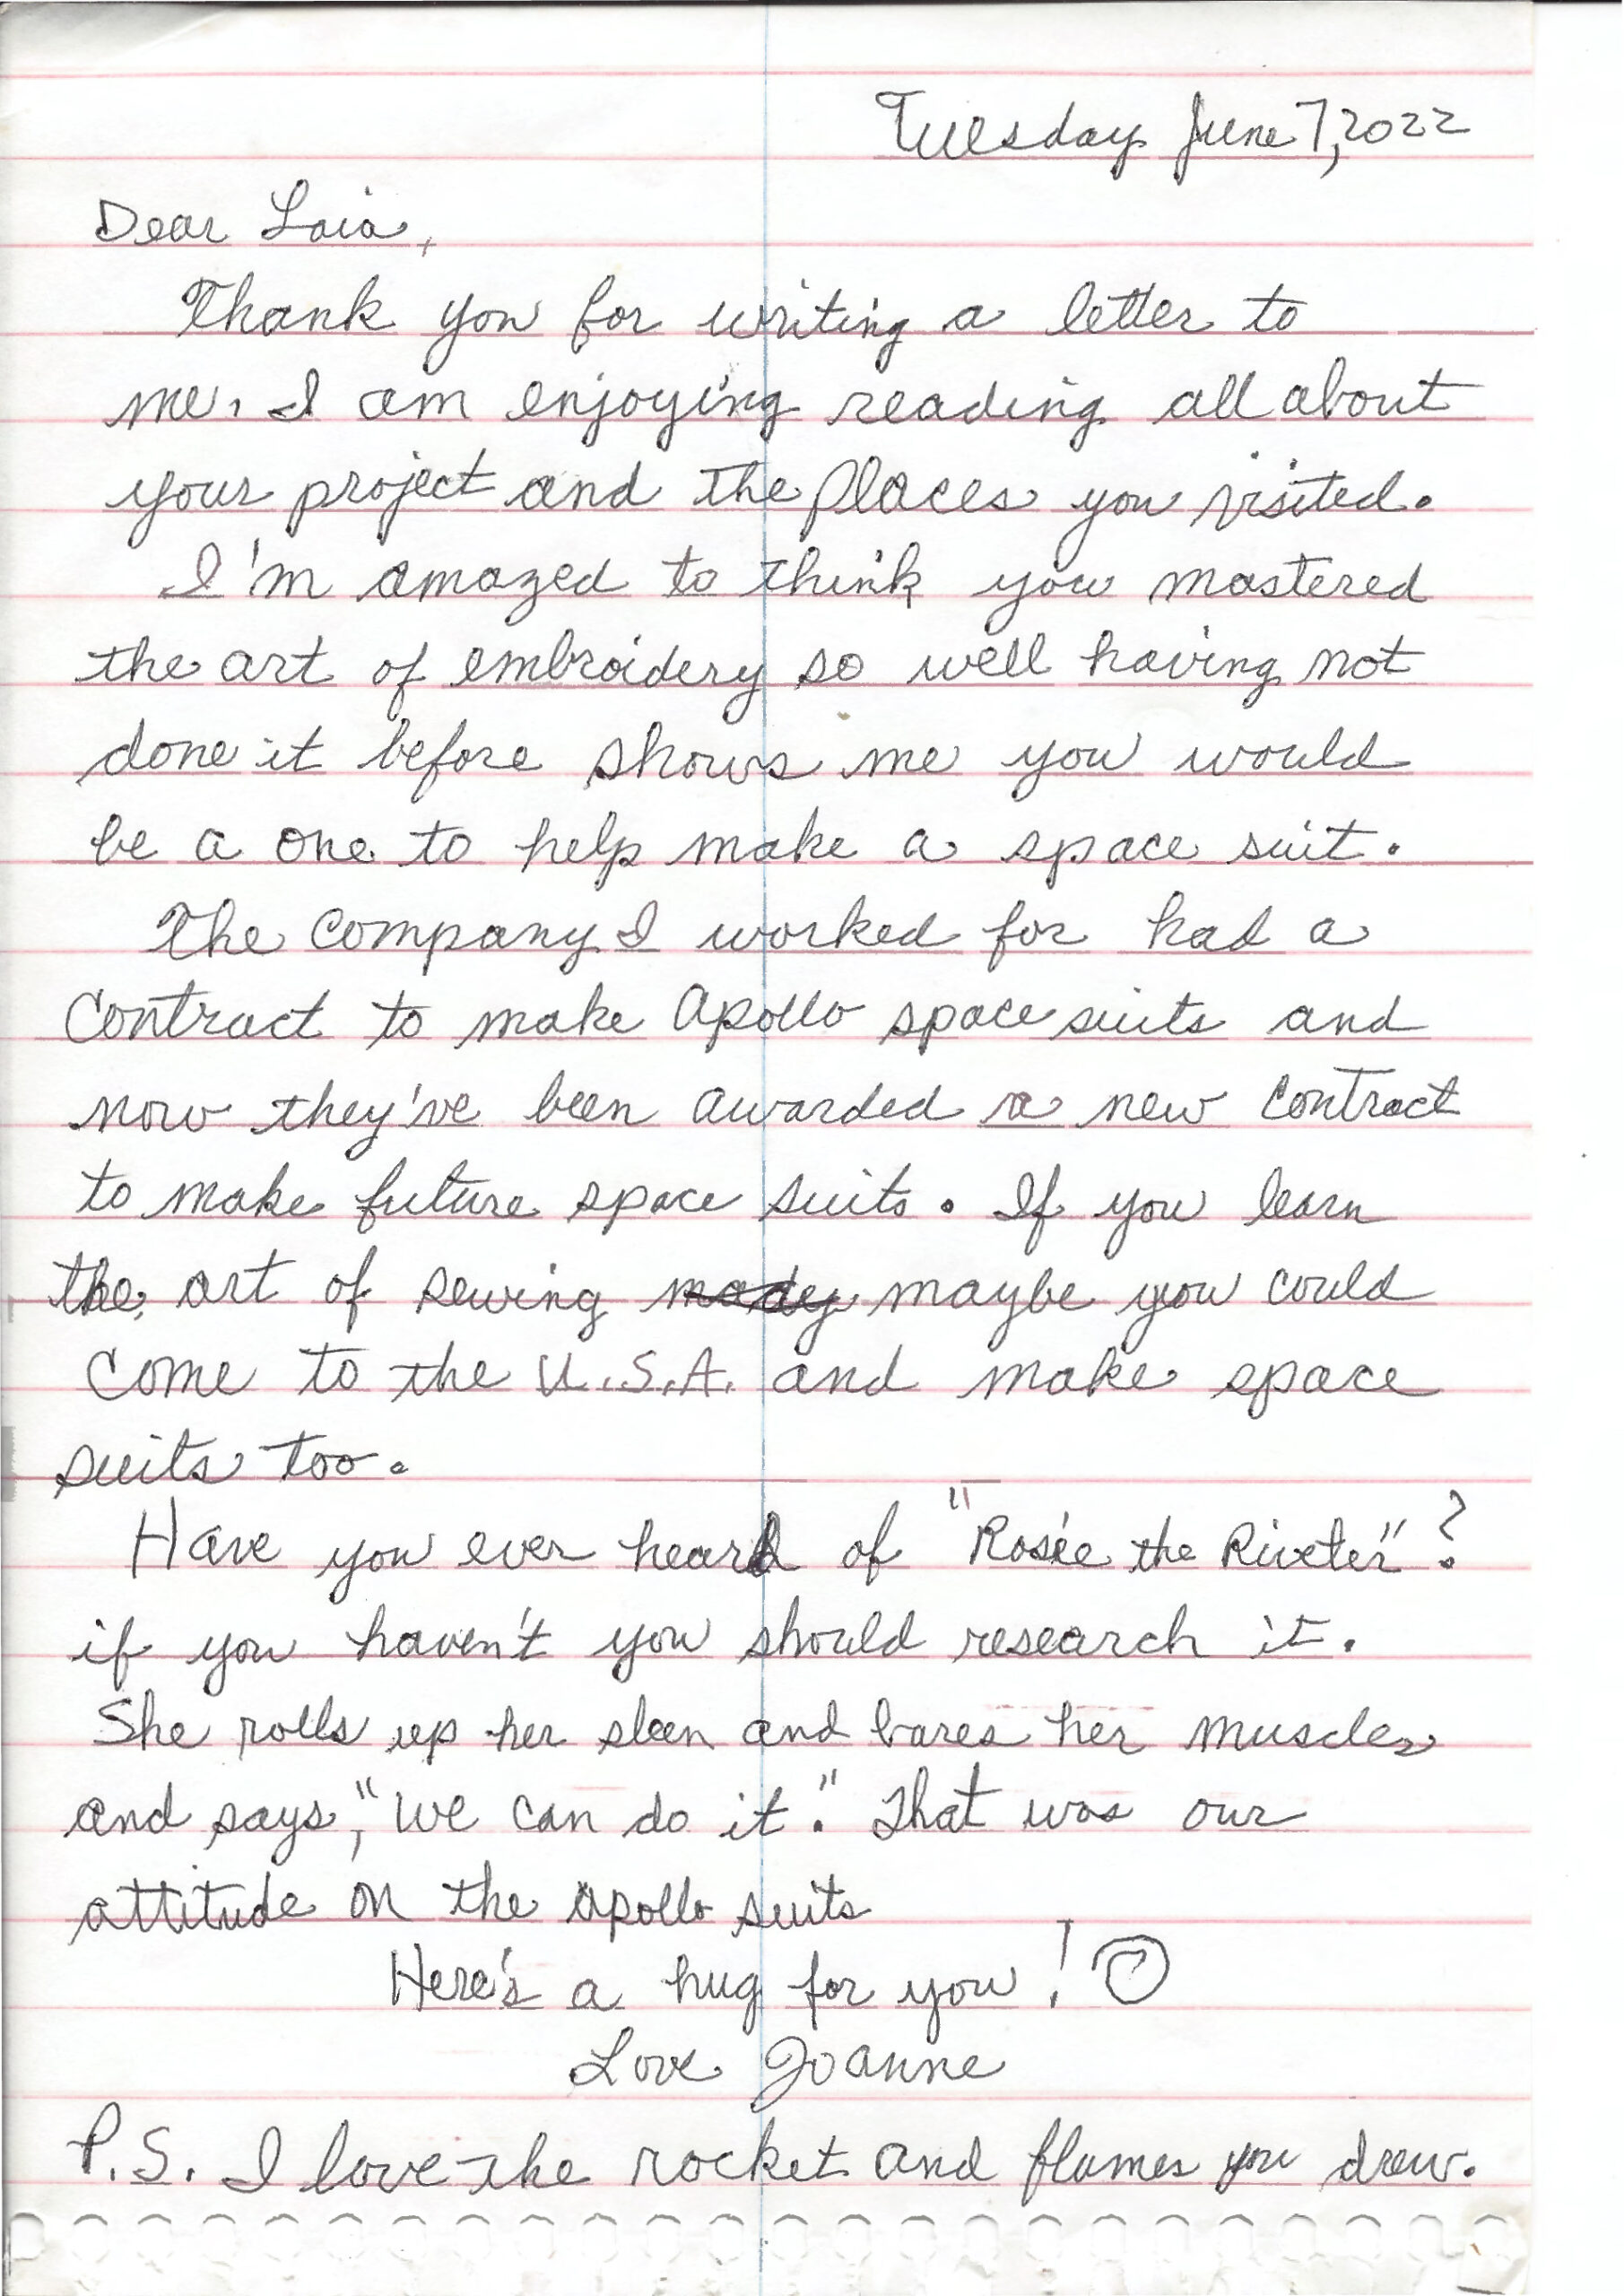 Tuesday June 7, 2022
Dear Laia,
Thank you for writing a letter to
me. I am enjoying reading all about
your project and the places you visited.
I'm amazed to think you mastered
the art of embroidery so well having not
done it before shows me you would
be a one to help make a space suit.
The company I worked for had a
contract to make Apollo space suits and
now they've been awarded a new contract
to make future space suits. If you learn
the art of sewing maybe you could
come to the U.S.A. and make space
suits too.
Have you ever heard of "Rosie the Riveter"?
if you haven't you should research it.
She rolls up her sleen and bares her muscles
and says, "We can do it". That was our
attitude on the Apollo suits
Here's a hug for you!
Love Joanne
P.S. I love the rocket and flames you drew.